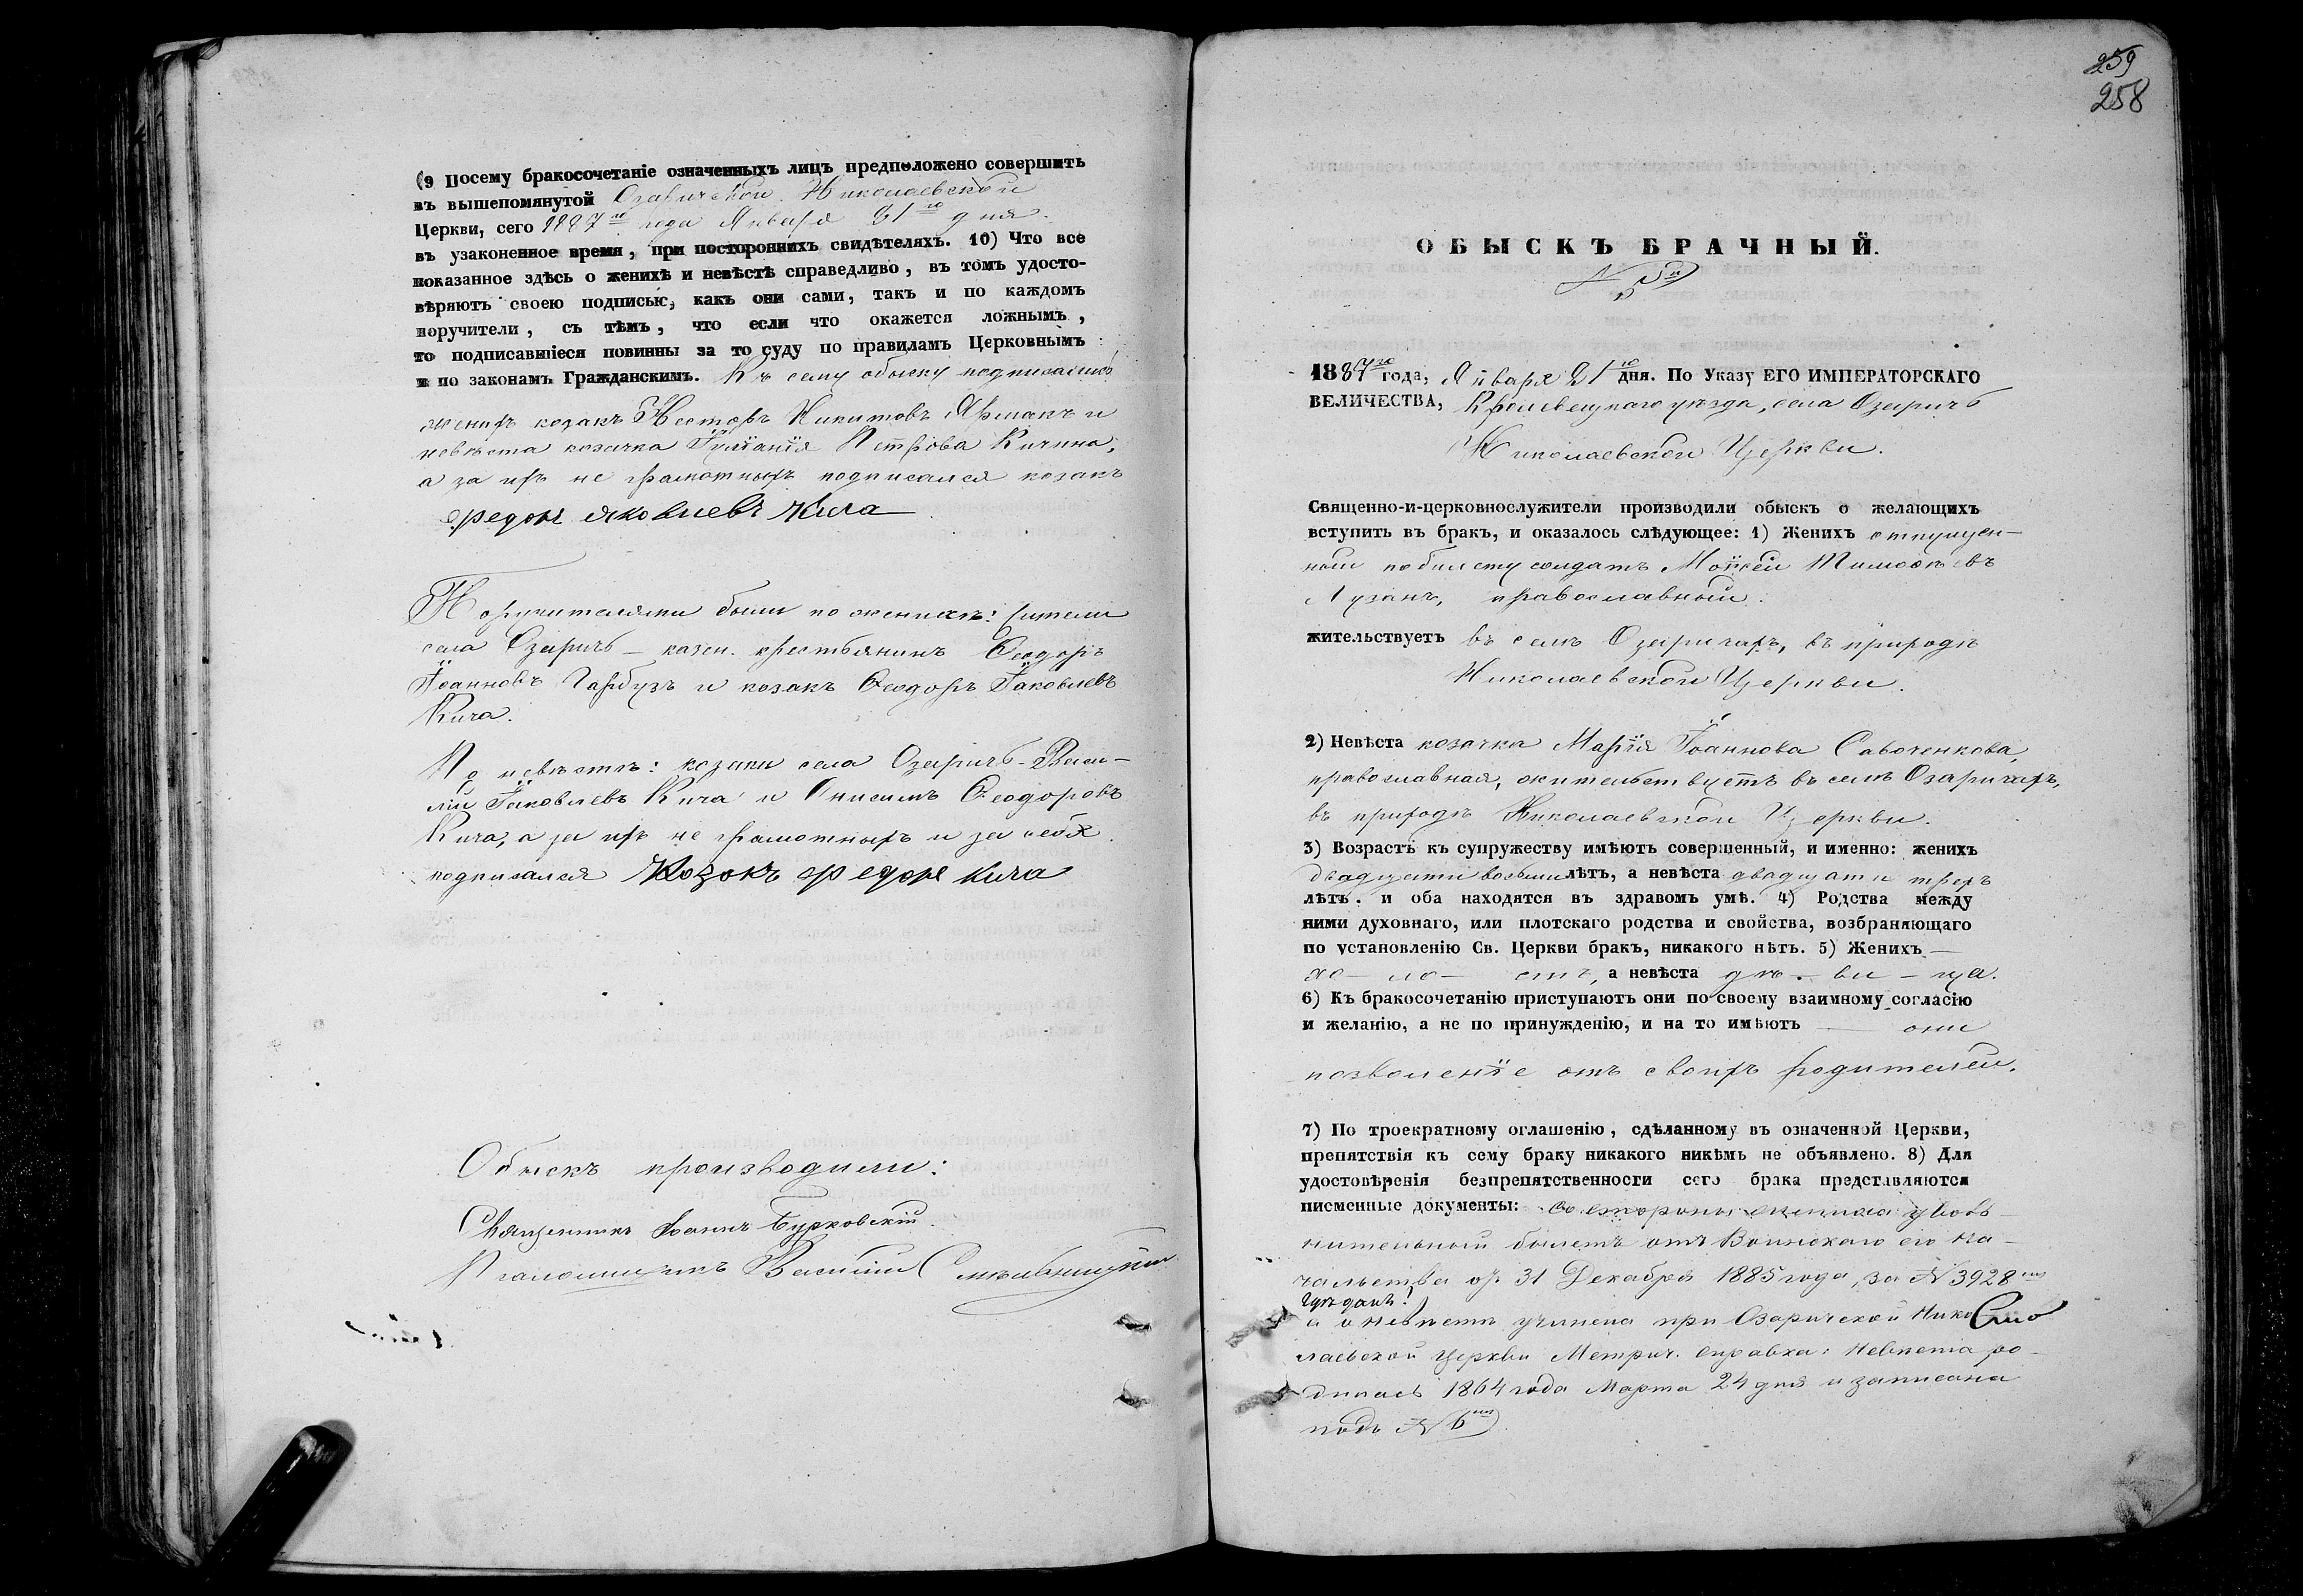 (9 Посему бракосочетаніе означенныхъ лицъ предположено совершить
въ вышепомянутой Озаричской Николаевской
Церкви, сего 1887го года Января 21го дня.
въ узаконенное время, при постороннихъ свидѣтеляхъ. 10) Что все
показанное здѣсь о женихѣ и невѣстѣ справедливо, въ томъ удосто-
вѣряютъ своею подписью, какъ они сами, такъ и по каждомъ
поручители, съ тѣмъ, что если что окажется ложнымъ,
то подписавшіеся повинны за то суду по правиламъ Церковнымъ
и по законамъ Гражданскимъ. Къ сему обыску подписались
женихъ козакъ Несторъ Никитовъ Ярмакъ и
невѣста козачка Іуліанія Петрова Кичина,
а за ихъ не грамотныхъ подписался козакъ
Федоръ Яковлевъ Кича
Поручителями были по женихѣ: жители
села Озаричъ – казен. крестьянинъ Ѳеодоръ
Іоанновъ Гарбузъ и козакъ Ѳеодоръ Іаковлевъ
Кича.
По невѣстѣ: козаки села Озаричъ – Васи-
лій Іаковлевъ Кича и Онисимъ Ѳеодоровъ
Кича, а за ихъ не грамотныхъ и за себя
подписался Козокъ Федоръ Кича
Обыскъ производили:
Священникъ Іоаннъ Бурковскій
Псаломщикъ Василій
259
258
ОБЫСКЪ БРАЧНЫЙ.
N 5й
1887го года, Января 21го дня. По Указу ЕГО ИМПЕРАТОРСКАГО
ВЕЛИЧЕСТВА, Кролевецкаго уѣзда, села Озаричъ
Николаевской Церкви.
Священно-и-церковнослужители производили обыскъ о желающихъ
вступить въ бракъ, и оказалось слѣдующее: 1) Женихъ отпущен-
ный по билету солдатъ Моѵсей Тимоѳеевъ
Лузанъ, православный.
жительствуетъ въ селѣ Озаричахъ, въ приходѣ
Николаевской Церкви.
2) Невѣста козачка Марія Іоаннова Савоченкова,
православная, жительствуетъ въ селѣ Озаричахъ,
въ приходѣ Николаевской Церкви.
3) Возрастъ къ супружеству имѣютъ совершенный, и именно: женихъ
двадцати восьми лѣтъ, а невѣста двадцати трехъ
лѣтъ. и оба находятся въ здравомъ умѣ. 4) Родства между
ними духовнаго, или плотскаго родства и свойства, возбраняющаго
по установленію Св. Церкви бракъ, никакого нѣтъ. 5) Женихъ —
хо – ло – стъ, а невѣста дѣ – ви – ца.
6) Къ бракосочетанію приступаютъ они по своему взаимному согласію
и желанію, а не по принужденію, и на то имѣютъ — они
позволеніе отъ своихъ родителей.
7) По троекратному оглашенію, сдѣланному въ означенной Церкви,
препятствія къ сему браку никакого никѣмъ не объявлено. 8) Для
удостовѣренія безпрепятственности сего брака представляются
писменные документы: со стороны жениха уволь-
нительный билетъ отъ Воинскаго его на-
чальства отъ 31 Декабря 1885 года, за N 3928мъ
Гдѣ данъ?
а о невѣстѣ учинена при Озаричской Нико
лаевской церкви Метрич. справка: невѣста ро-
дилась 1864 года Марта 24 дня и записана
подъ N 6мъ